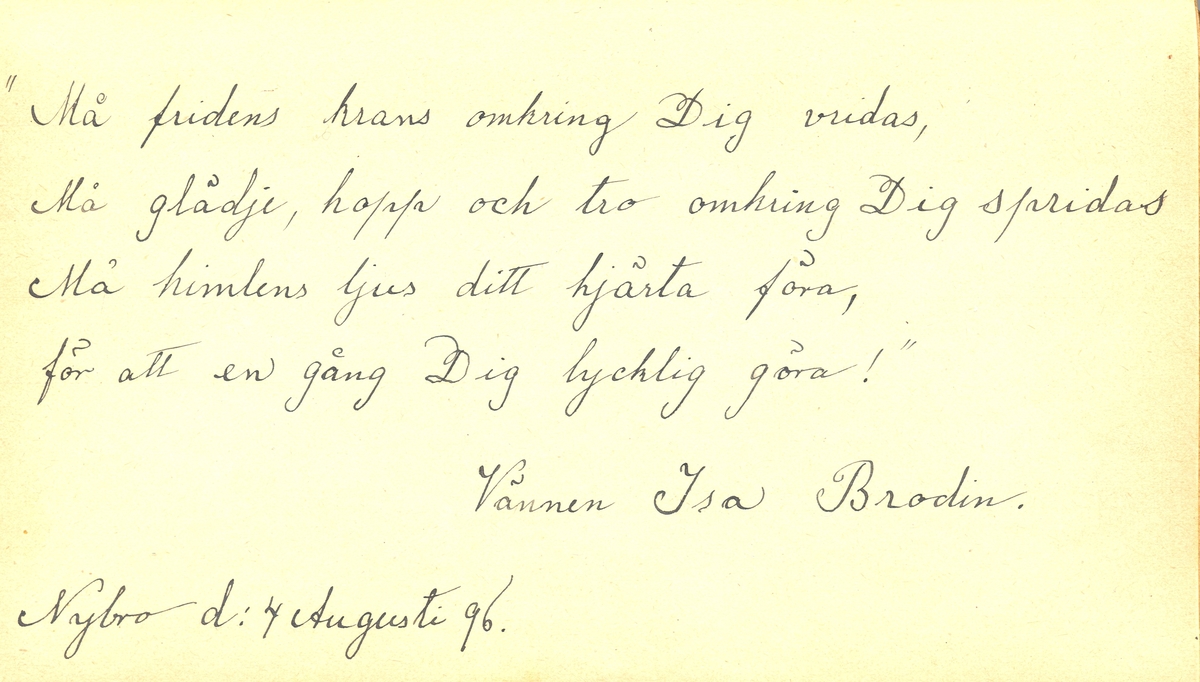 "Må fridens krans omkring Dig vridas,
Må glädje, hopp och tro omkring Dig spridas
Må himlens ljus ditt hjärta föra,
för att en gång Dig lycklig göra!"
Vännen Isa Brodin.
Nybro d: 4 Augusti 96.